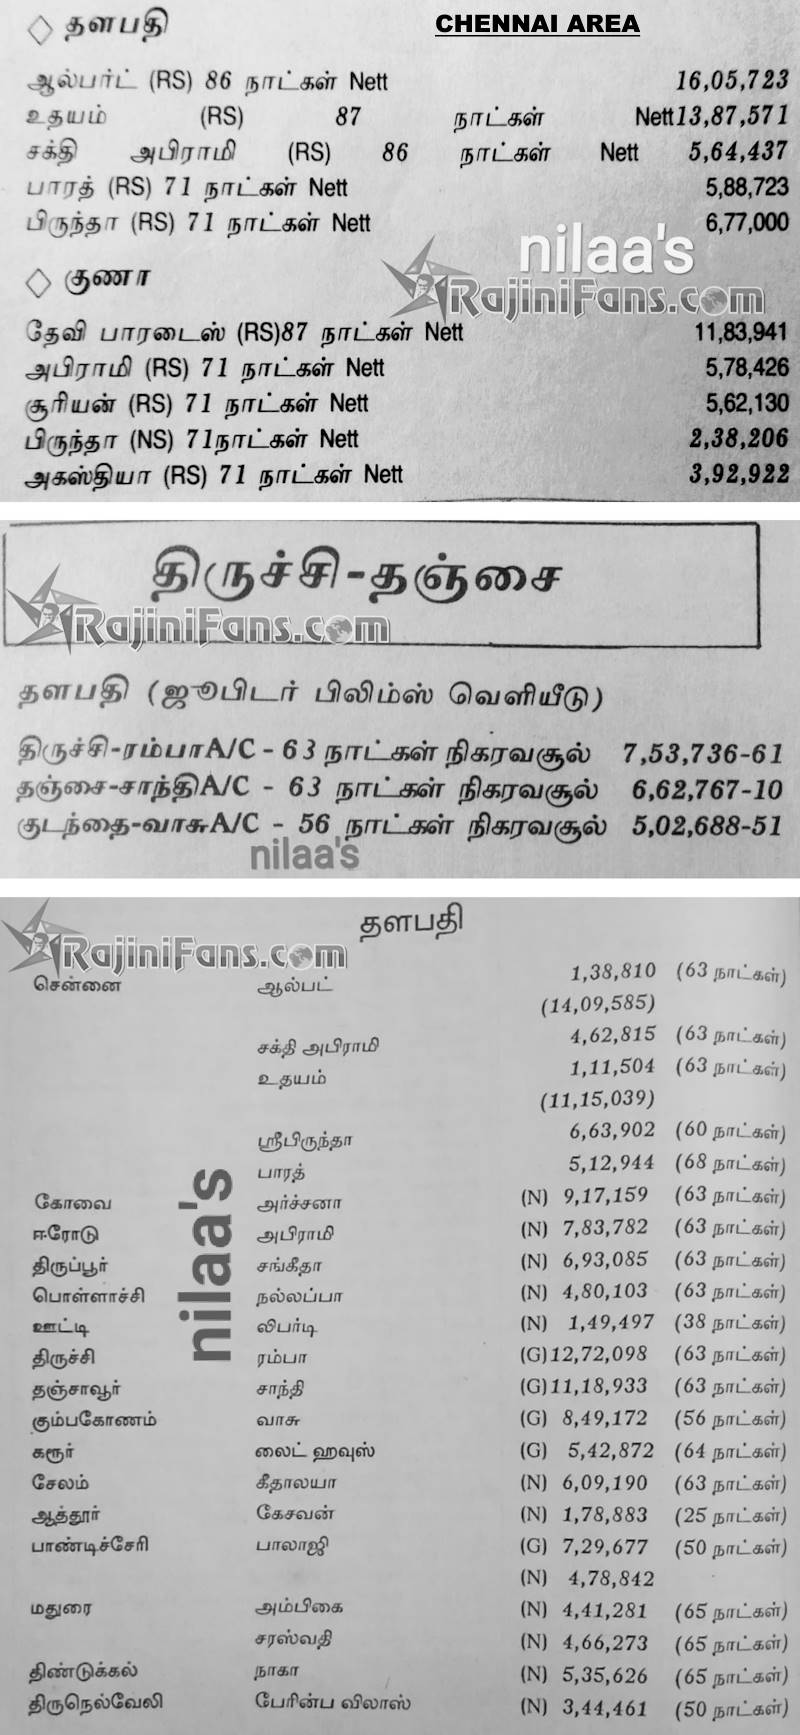 ◇ தளபதி CHENNAI AREA
ஆல்பர்ட் (RS) 86 நாட்கள் Nett 16,05,723
உதயம் (RS) 87 நாட்கள் Nett13,87,571
சக்தி அபிராமி (RS) 86 நாட்கள் Nett 5,64,437
பாரத் (RS) 71 நாட்கள் Nett 5,88,723
பிருந்தா (RS) 71 நாட்கள் Nett 6,77,000
nilaa's
RajiniFans.com
◇ குணா
தேவி பாரடைஸ் (RS)87 நாட்கள் Nett 11,83,941
அபிராமி (RS) 71 நாட்கள் Nett 5,78,426
சூரியன் (RS) 71 நாட்கள் Nett 5,62,130
பிருந்தா (NS) 71நாட்கள் Nett 2,38,206
அகஸ்தியா (RS) 71 நாட்கள் Nett 3,92,922
திருச்சி-தஞ்சை
RajiniFans.com
தளபதி (ஜூபிடர் பிலிம்ஸ் வெளியீடு)
திருச்சி-ரம்பாA/C - 63 நாட்கள் நிகரவசூல் 7,53,736-61
தஞ்சை-சாந்திA/C - 63 நாட்கள் நிகரவசூல் 6,62,767-10
குடந்தை-வாசுA/C - 56 நாட்கள் நிகரவசூல் 5,02,688-51
nilaa's
தளபதி
RajiniFans.com
சென்னை ஆல்பட் 1,38,810 (63 நாட்கள்)
(14,09,585)
சக்தி அபிராமி 4,62,815 (63 நாட்கள்)
உதயம் 1,11,504 (63 நாட்கள்)
(11,15,039)
ஸ்ரீபிருந்தா 6,63,902 (60 நாட்கள்)
பாரத் 5,12,944 (68 நாட்கள்)
nilaa's
கோவை அர்ச்சனா (N) 9,17,159 (63 நாட்கள்)
ஈரோடு அபிராமி (N) 7,83,782 (63 நாட்கள்)
திருப்பூர் சங்கீதா (N) 6,93,085 (63 நாட்கள்)
பொள்ளாச்சி நல்லப்பா (N) 4,80,103 (63 நாட்கள்)
ஊட்டி லிபர்டி (N) 1,49,497 (38 நாட்கள்)
திருச்சி ரம்பா (G)12,72,098 (63 நாட்கள்)
தஞ்சாவூர் சாந்தி (G)11,18,933 (63 நாட்கள்)
கும்பகோணம் வாசு (G) 8,49,172 (56 நாட்கள்)
கரூர் லைட் ஹவுஸ் (G) 5,42,872 (64 நாட்கள்)
சேலம் கீதாலயா (N) 6,09,190 (63 நாட்கள்)
ஆத்தூர் கேசவன் (N) 1,78,883 (25 நாட்கள்)
பாண்டிச்சேரி பாலாஜி (G) 7,29,677 (50 நாட்கள்)
(N) 4,78,842
மதுரை அம்பிகை (N) 4,41,281 (65 நாட்கள்)
சரஸ்வதி (N) 4,66,273 (65 நாட்கள்)
திண்டுக்கல் நாகா (N) 5,35,626 (65 நாட்கள்)
திருநெல்வேலி பேரின்ப விலாஸ் (N) 3,44,461 (50 நாட்கள்)